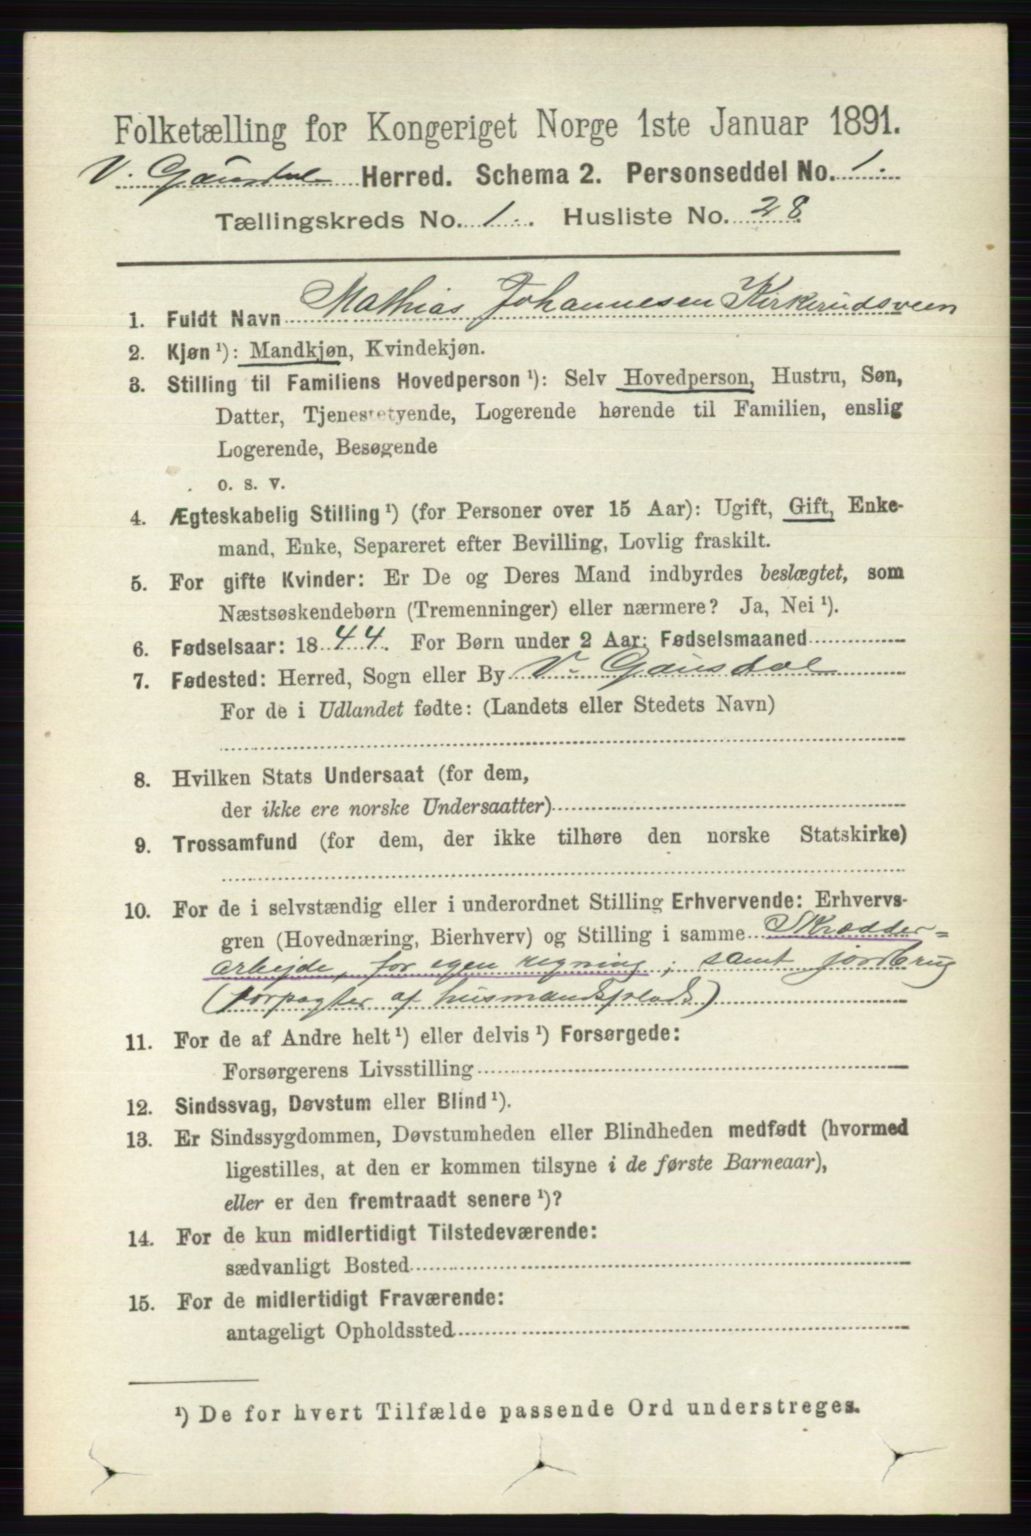 Folketælling for Kongeriget Norge 1ste Januar 1891.
V. Gausdal Herred. Schema 2. Personseddel No. 1.
Tællingskreds No. 1. Husliste No. 28
1. Fuldt Navn Mathias Johannesen Kirkerudsveen
2. Kjøn ¹): Mandkjøn, Kvindekjøn.
3. Stilling til Familiens Hovedperson ¹): Selv Hovedperson, Hustru, Søn,
Datter, Tjenestetyende, Logerende hørende til Familien, enslig
Logerende, Besøgende
o. s. v.
4. Ægteskabelig Stilling ¹) (for Personer over 15 Aar): Ugift, Gift, Enke-
mand, Enke, Separeret efter Bevilling, Lovlig fraskilt.
5. For gifte Kvinder: Er De og Deres Mand indbyrdes beslægtet, som
Næstsøskendebørn (Tremenninger) eller nærmere? Ja, Nei ¹).
6. Fødselsaar: 1844. For Børn under 2 Aar: Fødselsmaaned
7. Fødested: Herred, Sogn eller By V. Gausdal
For de i Udlandet fødte: (Landets eller Stedets Navn)
8. Hvilken Stats Undersaat (for dem,
der ikke ere norske Undersaatter)
9. Trossamfund (for dem, der ikke tilhøre den norske Statskirke)
10. For de i selvstændig eller i underordnet Stilling Erhvervende: Erhvervs-
gren (Hovednæring, Bierhverv) og Stilling i samme Skrædder=
arbejde, for egen regning; samt jordbrug
(forpagter af husmandsplads)
11. For de af Andre helt ¹) eller delvis ¹) Forsørgede:
Forsørgerens Livsstilling
12. Sindssvag, Døvstum eller Blind ¹).
13. Er Sindssygdommen, Døvstumheden eller Blindheden medfødt (hvormed
ligestilles, at den er kommen tilsyne i de første Barneaar),
eller er den fremtraadt senere ¹)?
14. For de kun midlertidigt Tilstedeværende:
sædvanligt Bosted
15. For de midlertidigt Fraværende:
antageligt Opholdssted
¹) De for hvert Tilfælde passende Ord understreges.